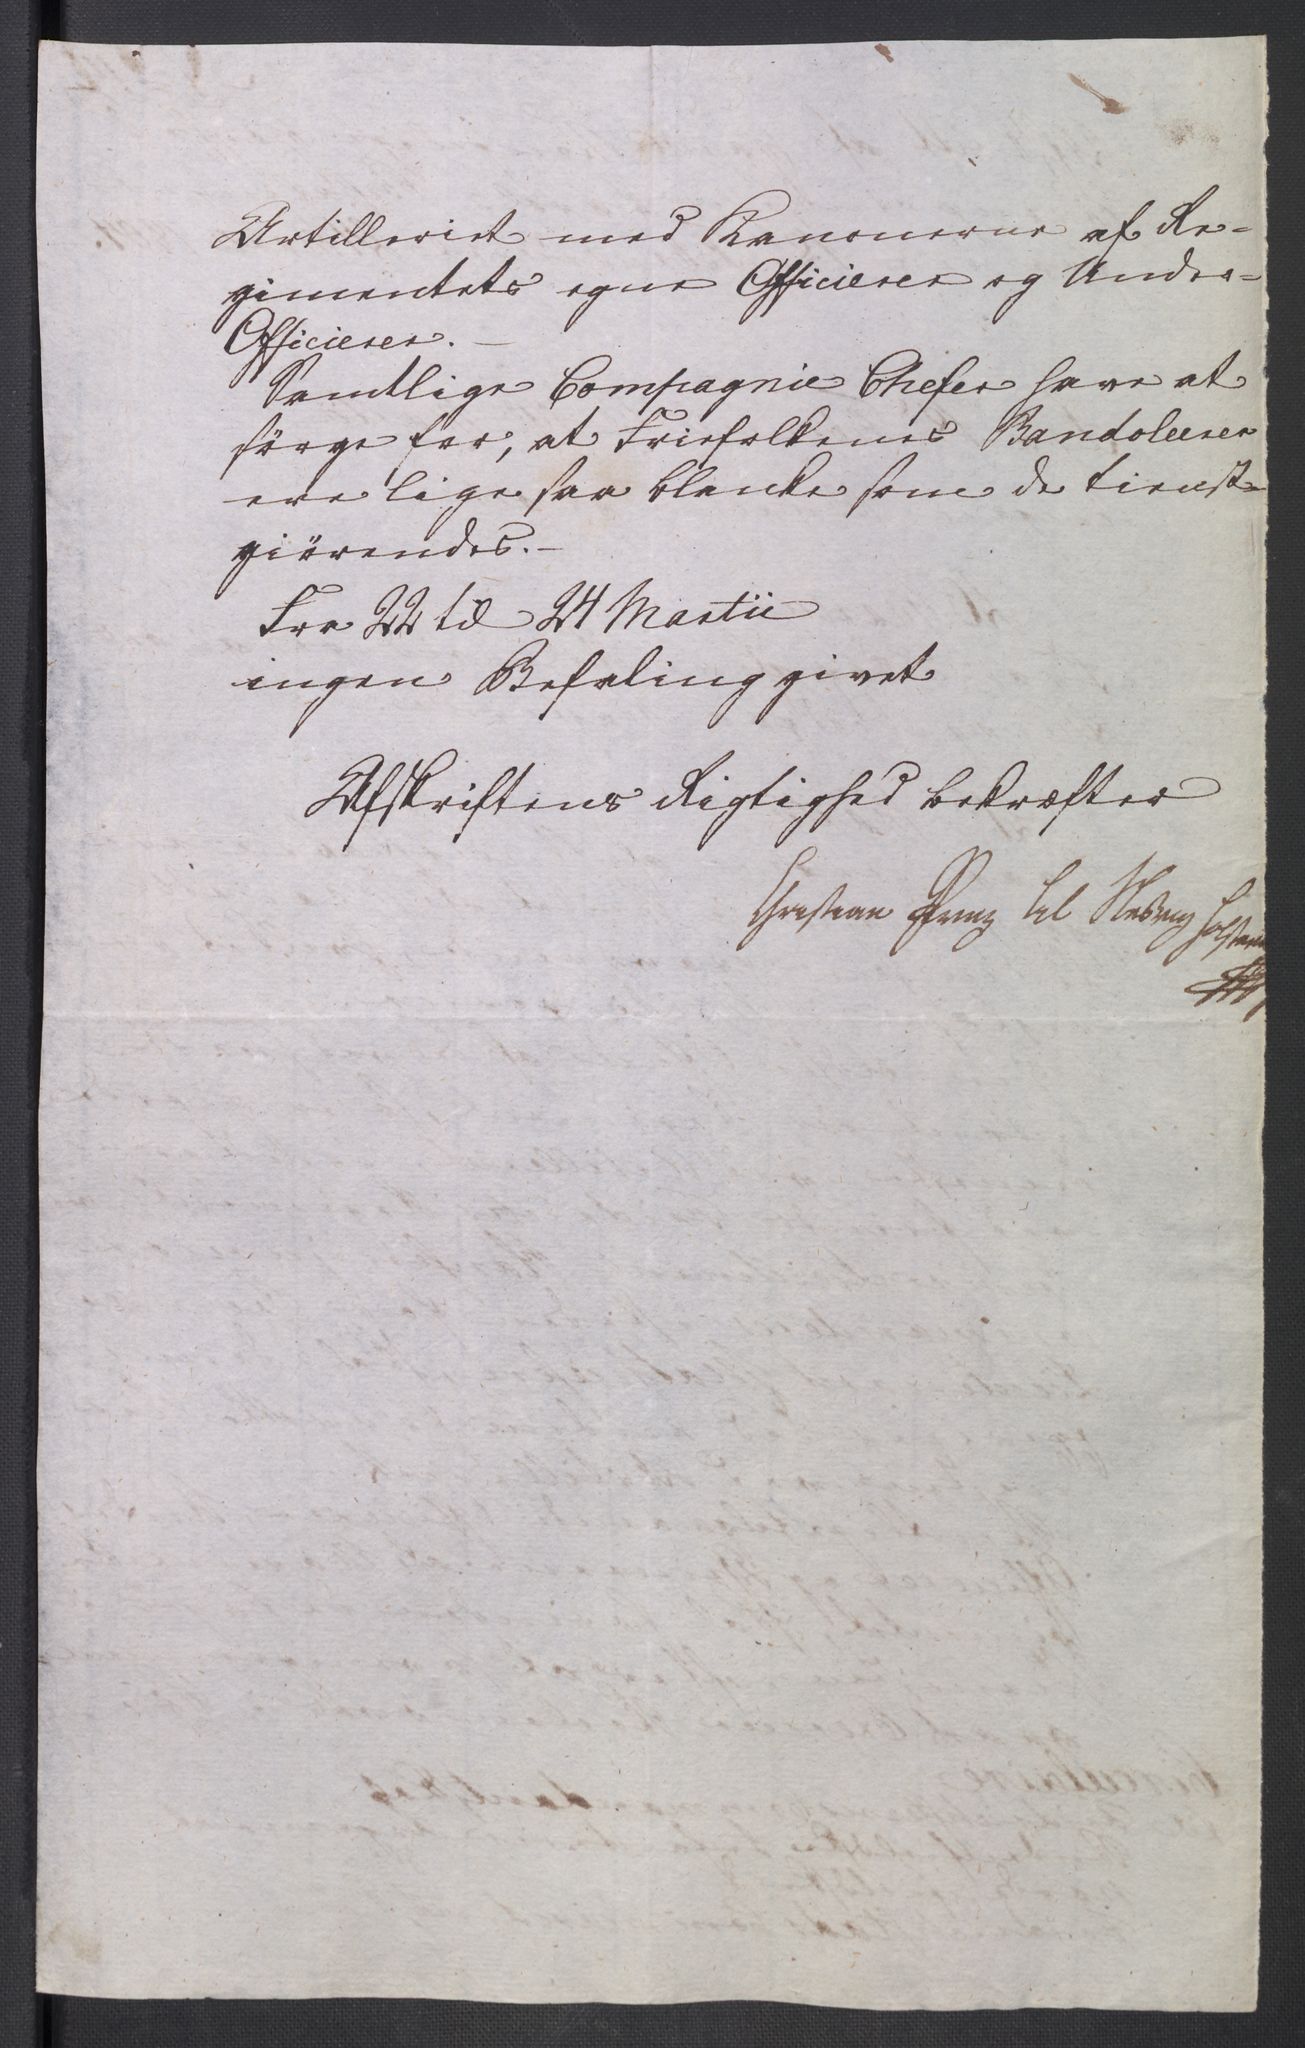 Artilleriet med Kanonerne af Re-
gimentets egne Officierer og Under-
Officierer. –
Samtlige Compagnie Chefer have at
sörge for, at Friefolkenes Bandoleerer
ere lige saa blanke som de tienst-
giörendes. –
Fra 22 til 24 Martii
ingen Befaling givet
Afskriftens Rigtighed bekræfter
Christian Prinz til Slesvig Holsten